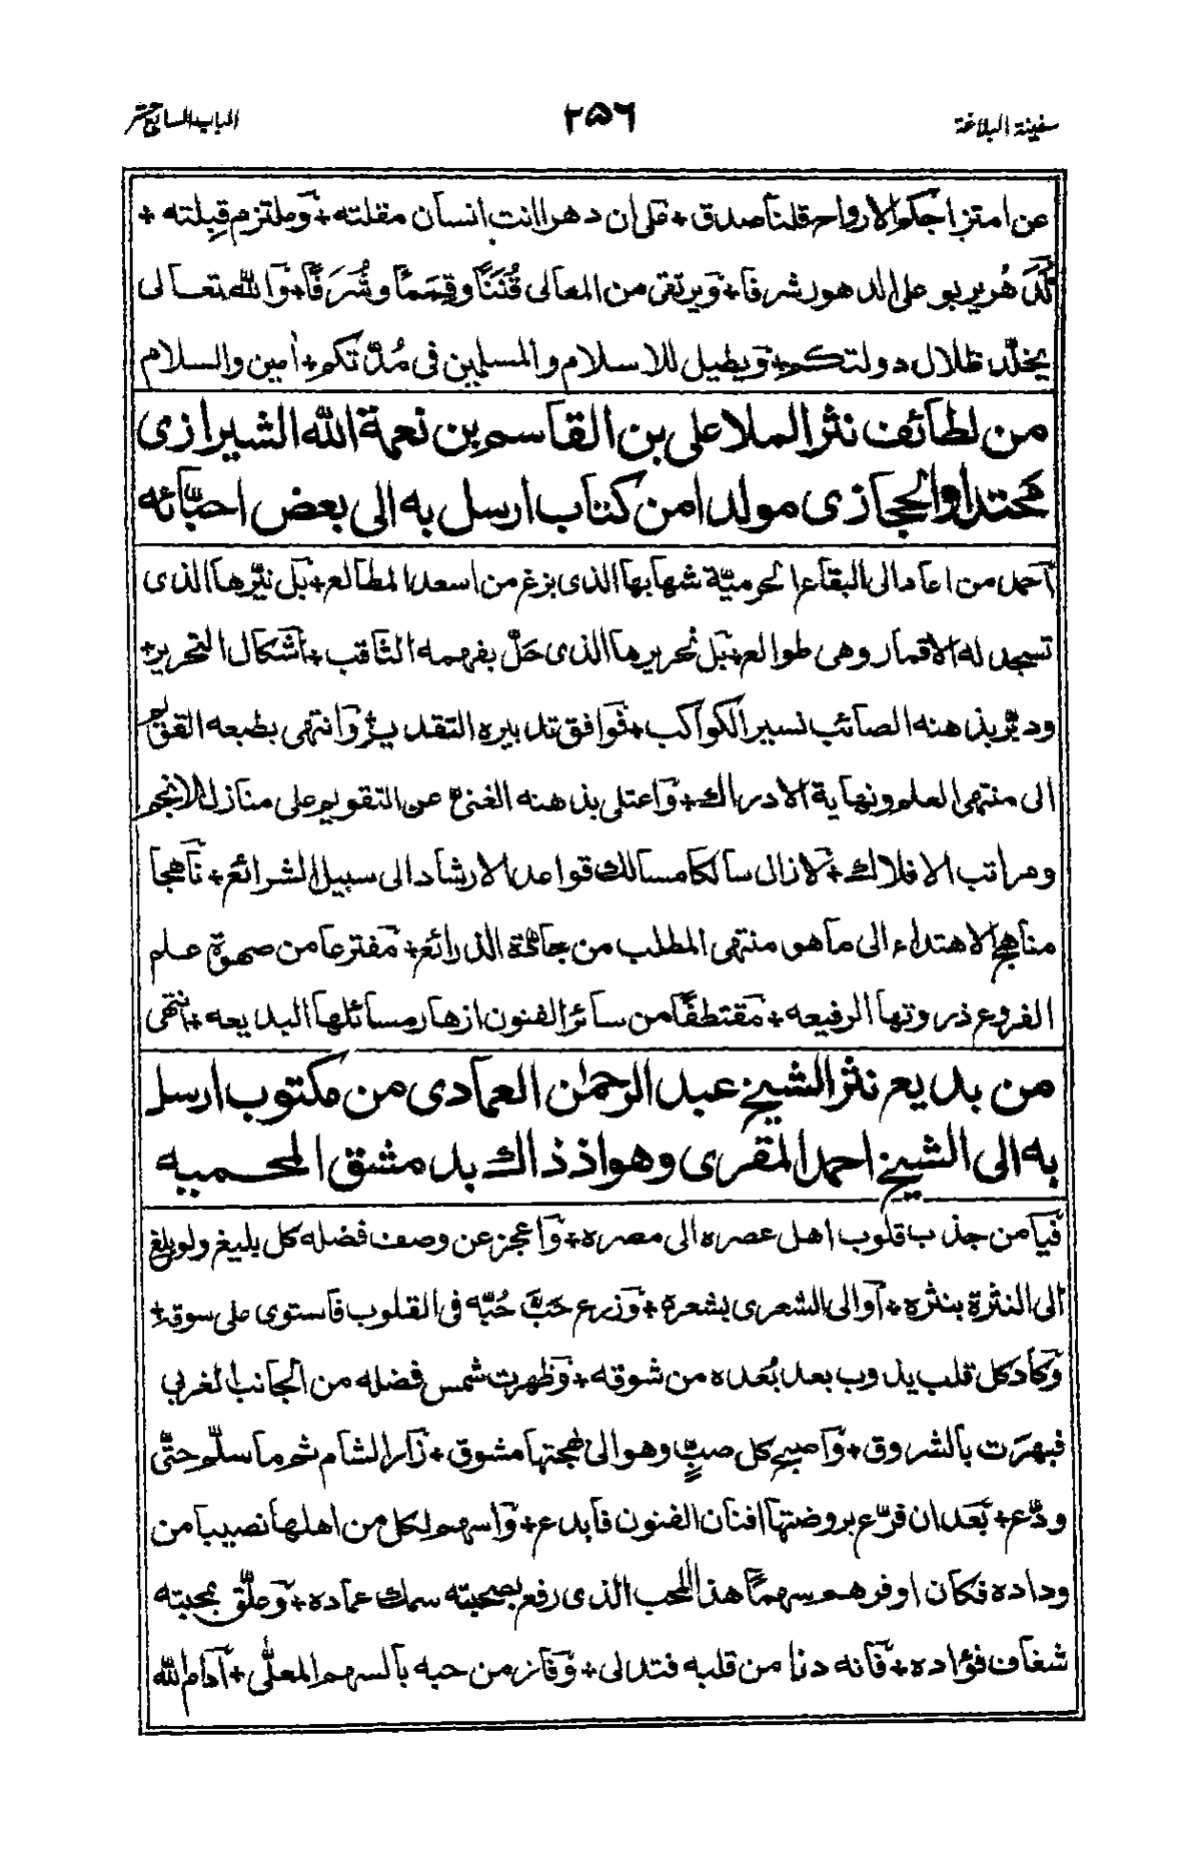 سفينة البلاغة
٢٥٦
الباب السابع عشر
عن امتزاجكم الارواح قلنا صدق + على ان دهرا انت انسان مقلته + وملتزم قبلته +
لَدَهْر يربو على الدهور شرفا + ويرتقى من المعالى قُنَنًا وقِسَمًا وشُرَفًا + والله تعالى
يخلّد ظلال دولتكم + ويطيل للاسلام والمسلمين فى مُدّتكم + أمين والسلام
من لطائف نثر الملا على بن القاسم بن نعمة الله الشيرازى
محتدا والحجازى مولدا من كتاب ارسل به الى بعض احبّائه
احمد من اعاد الى البقاع الحرميّة شهابها الذى بزغ من اسعد المطالع + بل نيّرها الذى
تسجد له الاقمار وهى طوالع + بل نحريرها الذى حَلّ بفهمه الثاقب + اشكال التحرير +
ودبّر بذهنه الصائب تسيير الكواكب + فوافق تدبيره التقدير + وانتهى بطبعه القويم
الى منتهى العلم ونهاية الادراك + واعتلى بذهنه الغنى عن التقويم على منازل الانجم
ومراتب الافلاك + لازال سالكا مسالك قواعد الارشاد الى سبيل الشرائع + ناهجا
مناهج الاهتداء الى ما هو منتهى المطلب من جادّة الذرائع + مفترعا من صهوة علم
الفروع ذروتها الرفيعه + مقتطفًا من سائر الفنون ازهار مسائلها البديعه + انتهى
من بديع نثر الشيخ عبد الرحمٰن العمادى من مكتوب ارسل
به الى الشيخ احمد المقرى وهو اذ ذاك بدمشق المحميه
فيا من جذب قلوب اهل عصره الى مصره + واعجز عن وصف فضله كل بليغ ولو بلغ
الى النثرة بنثره + او الى الشعرى بشعره + وزرع حَبَّ حُبّه فى القلوب فاستوى على سوقه +
وكاد كل قلب يذوب بعد بُعده من شوقه + وظهرت شمس فضله من الجانب الغربى
فبهرت بالشروق + واصبح كل صبٍّ وهو الى بهجتها مشوق + زار الشام ثم ما سلّم حتّى
ودّع + بعد ان فرّع بروضتها افنان الفنون فابدع + واسهم لكل من اهلها نصيبا من
وداده فكان اوفرهم سهمًا هذا المحب الذى رفع بصحبته سمك عماده + وعلّق بمحبته
شغاف فؤاده + فانه دنا من قلبه فتدلى + وفاز من حبه بالسهم المعلّى + ادام الله